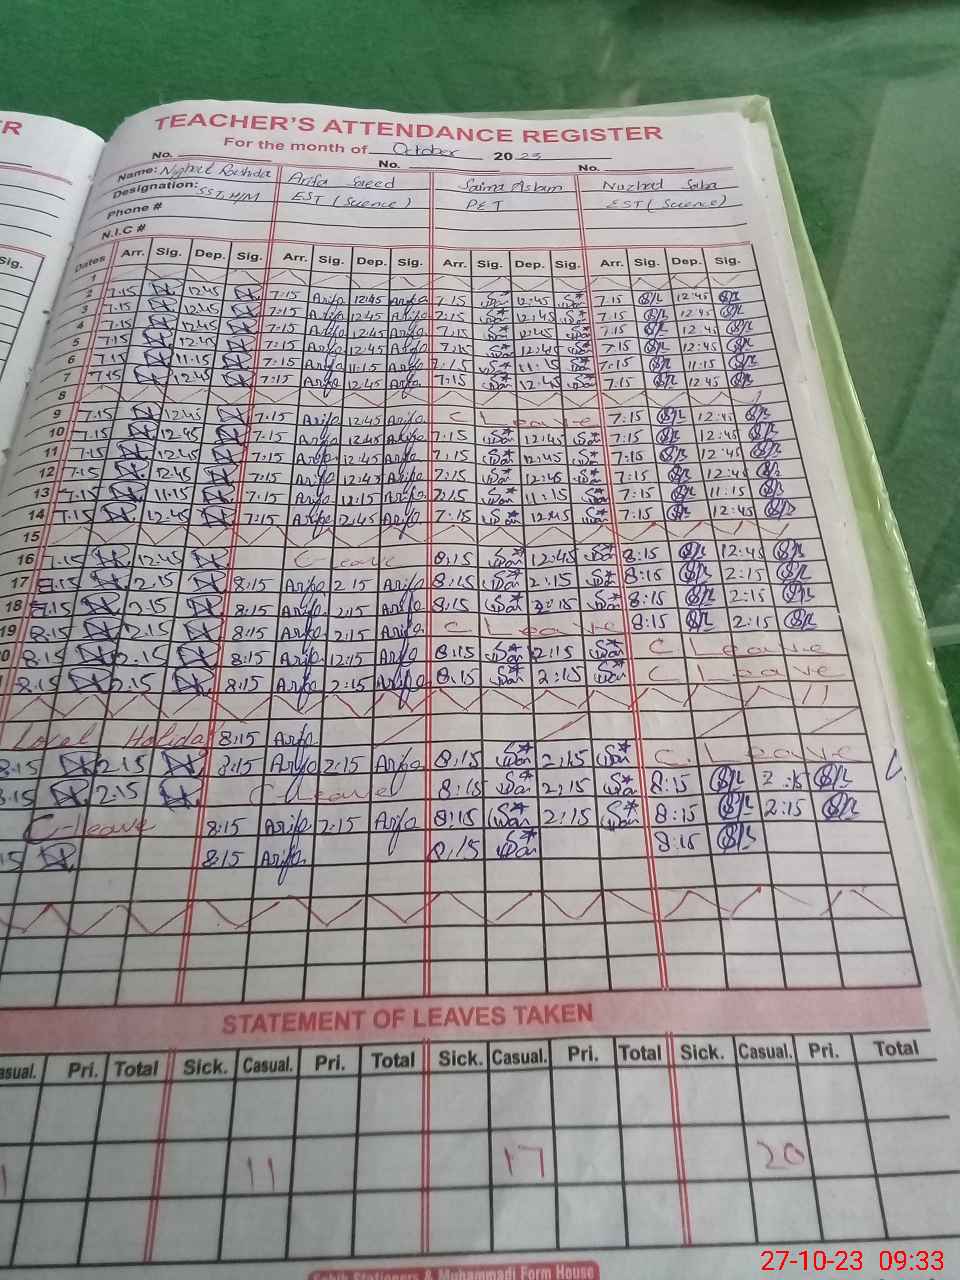 ER
TEACHER'S ATTENDANCE REGISTER
For the month of October 2023
No. No. No.
Name: Nighat Rashida Arifa Saeed Saima Aslam Nuzhat Saba
Designation: SST, H/M EST (Science) PET EST (Science)
Phone #
N.I.C #
Sig.
Dates Arr. Sig. Dep. Sig. Arr. Sig. Dep. Sig. Arr. Sig. Dep. Sig. Arr. Sig. Dep. Sig.
1
2 7.15 12.45 7:15 Arifa 12:45 Arifa 7.15 12.45 7.15 12:45
3 7.15 12.45 7:15 Arifa 12.45 Arifa 7:15 12:45 7:15 12:45
4 7.15 12.45 7:15 Arifa 12.45 Arifa 7.15 12:45 7:15 12:45
5 7.15 12.45 7:15 Arifa 12.45 Arifa 7:15 12:45 7:15 12:45
6 7.15 11.15 7:15 Arifa 11.15 Arifa 7:15 11:15 7:15 11:15
7 7.15 12.45 7:15 Arifa 12.45 Arifa 7:15 12:45 7:15 12:45
8
9 7.15 12.45 7:15 Arifa 12.45 Arifa C Leave 7:15 12:45
10 7.15 12.45 7:15 Arifa 12.45 Arifa 7:15 12:45 7:15 12:45
11 7.15 12.45 7:15 Arifa 12.45 Arifa 7:15 12:45 7:15 12:45
12 7.15 12.45 7:15 Arifa 12.45 Arifa 7:15 12:45 7:15 12:45
13 7.15 11.15 7:15 Arifa 12:15 Arifa 7:15 11:15 7:15 11:15
14 7.15 12.45 7:15 Arifa 12.45 Arifa 7:15 12:45 7:15 12:45
15
16 7.15 12.45 C-Leave 8:15 12:45 8:15 12:45
17 8.15 2.15 8:15 Arifa 2:15 Arifa 8:15 2:15 8:15 2:15
18 8.15 2.15 8:15 Arifa 2:15 Arifa 8:15 2:15 8:15 2:15
19 8.15 2.15 8:15 Arifa 2:15 Arifa C Leave 8:15 2:15
0 8.15 2.15 8:15 Arifa 12:15 Arifa 8:15 2:15 C. Leave
8.15 2.15 8:15 Arifa 2:15 Arifa 8:15 2:15 C Leave
Local Holiday 8:15 Arifa
8.15 2.15 8:15 Arifa 2:15 Arifa 8:15 2:15 C. Leave
8.15 2.15 C-Leave 8:15 2:15 8:15 2:15
C-Leave 8:15 Arifa 2:15 Arifa 8:15 2:15 8:15 2:15
15 8:15 Arifa 8:15 8:15
STATEMENT OF LEAVES TAKEN
asual. Pri. Total Sick. Casual. Pri. Total Sick. Casual. Pri. Total Sick. Casual. Pri. Total
1 11 17 20
Sahib Stationers & Muhammadi Form House
27-10-23 09:33